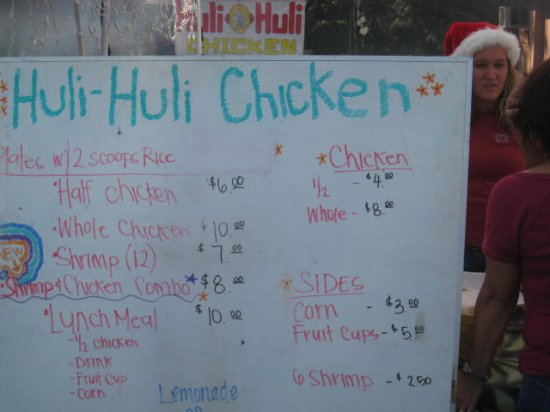 Huli Huli
CHICKEN
Huli-Huli Chicken
Plates w/2 scoops Rice
Half chicken $6.00
• Whole Chicken $10.00
• Shrimp (12) $7.00
NEW
• Shrimp & Chicken Combo * $8.00
• Lunch Meal $10.00
- 1/2 chicken
- Drink
- Fruit Cup
- Corn
Lemonade
* Chicken
1/2 - $4.00
Whole - $8.00
SIDES
Corn - $3.00
Fruit Cups - $5.00
6 Shrimp - $2.50